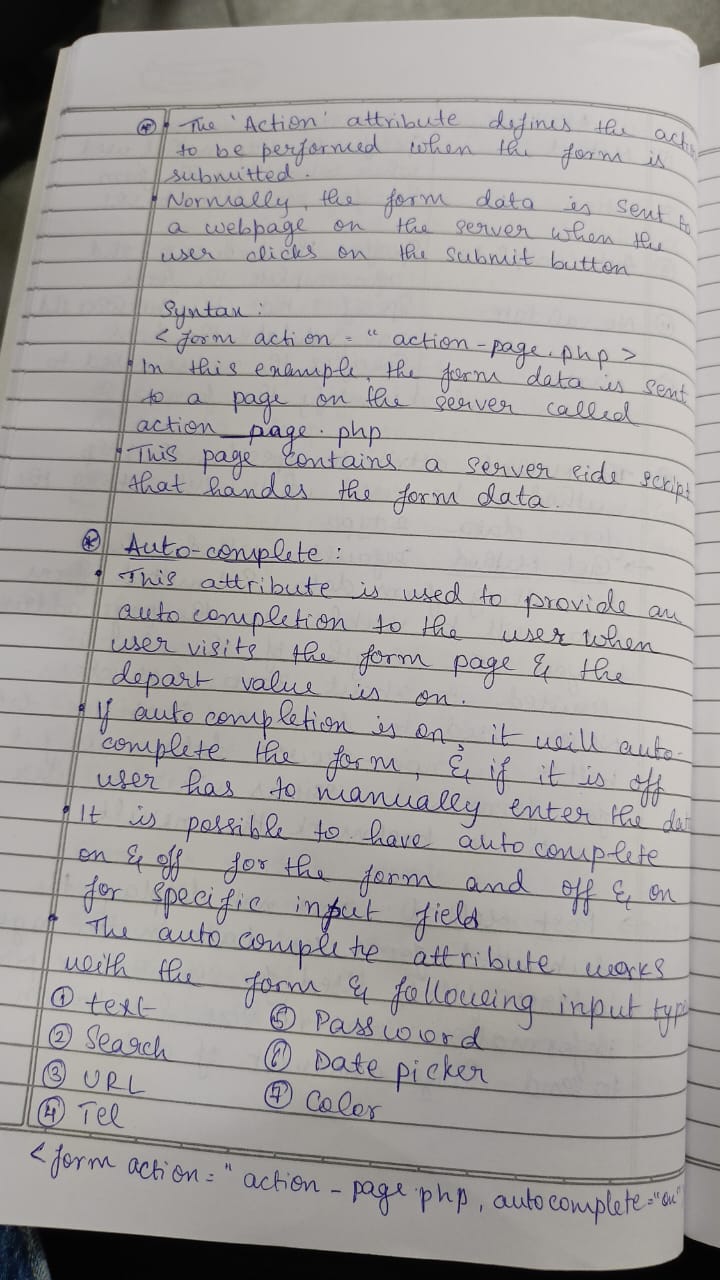 ⊛ • The 'Action' attribute defines the acti
to be performed when the form is
submitted.
• Normally, the form data is sent to
a webpage on the server when the
user clicks on the submit button
Syntax :
< form action = " action-page.php >
• In this example, the form data is sent
to a page on the server called
action_page.php
• This page contains a server side script
that handes the form data.
⊛ Auto-complete :
• This attribute is used to provide an
auto completion to the user when
user visits the form page & the
depart value is on.
• If auto completion is on, it will auto-
complete the form, & if it is off
user has to manually enter the dat
• It is possible to have auto complete
on & off for the form and off & on
for specific input field
• The auto complete attribute works
with the form & following input type
① text ⑤ Password
② Search ⑥ Date picker
③ URL ⑦ Color
④ Tel
< form action = " action-page.php, autocomplete="on"